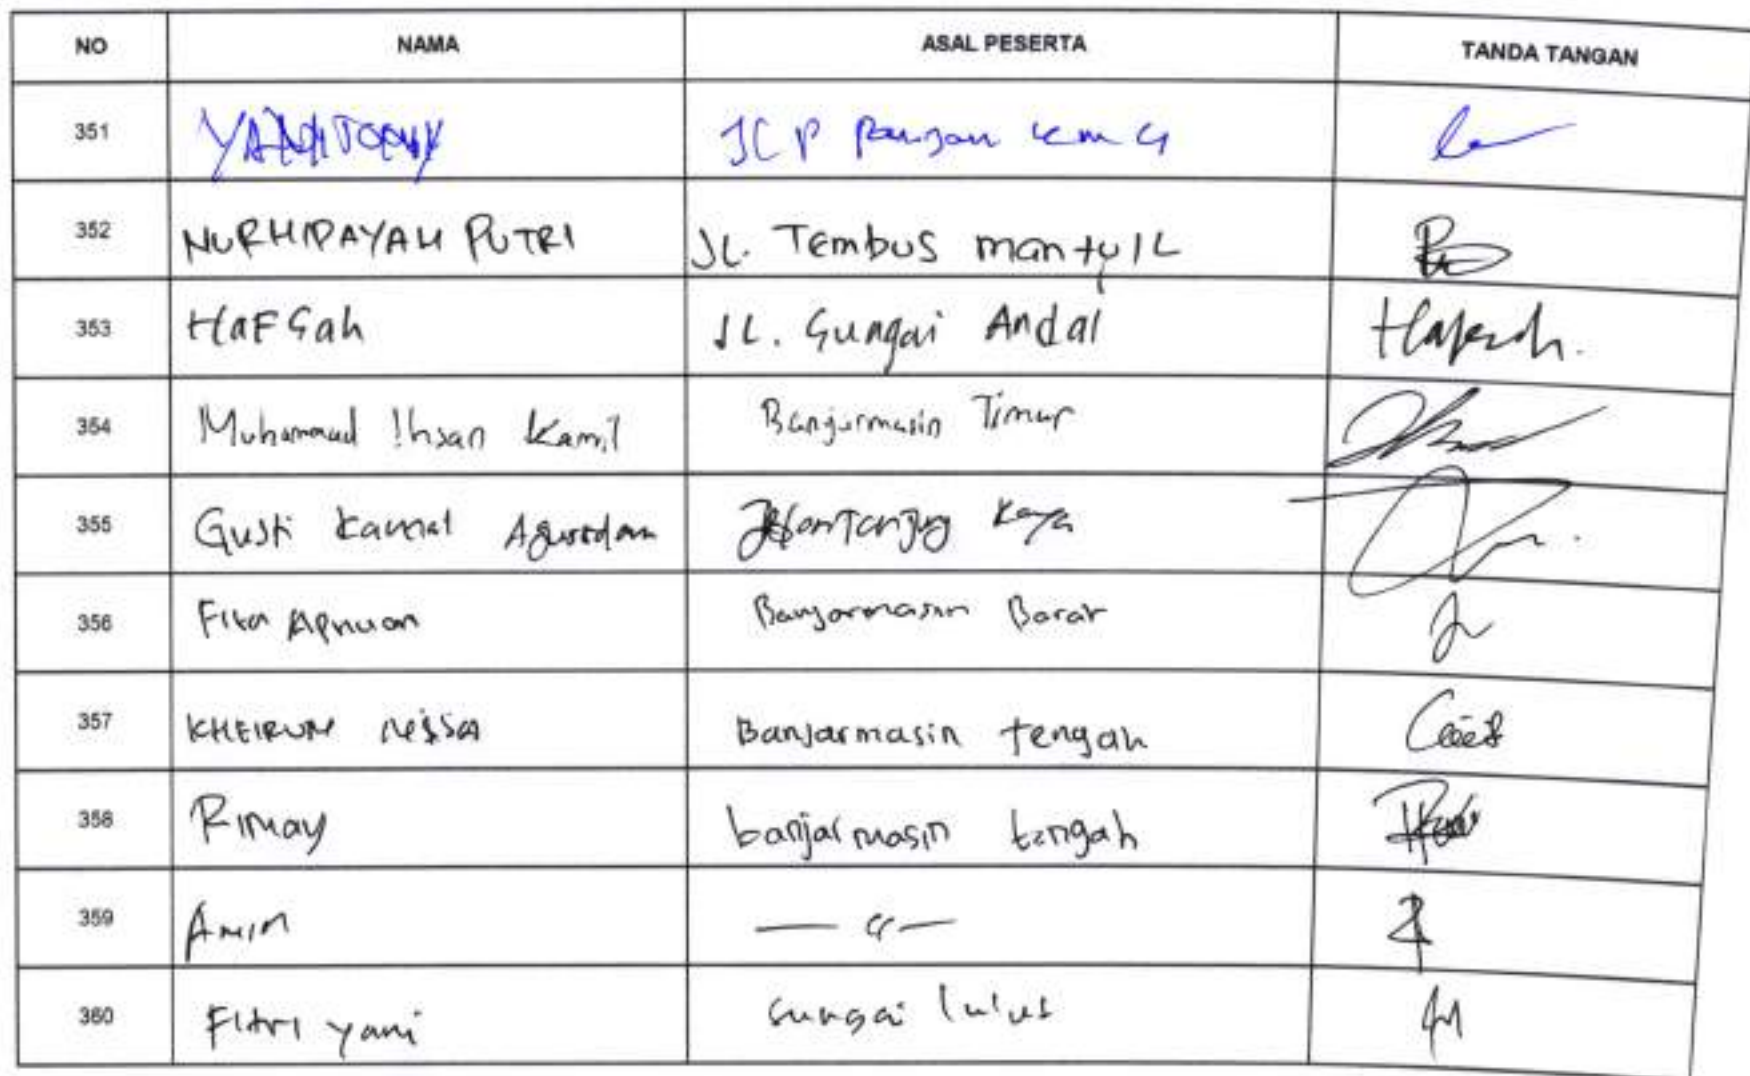 NO NAMA ASAL PESERTA TANDA TANGAN
351 km 4
352 NURHIDAYAH PUTRI JL. Tembus mantuIL
353 HaFSah JL. Sungai Andai Hafsah.
354 Muhammad Ihsan Kamil Banjarmasin Timur
355 Gusti Kamal Jalan Tanjung
356 Banjarmasin Barat
357 KHEIRUN NISSA Banjarmasin tengah
358 Rimay banjarmasin tengah
359 Amin — 〃 —
360 Fitri yani sungai lulut